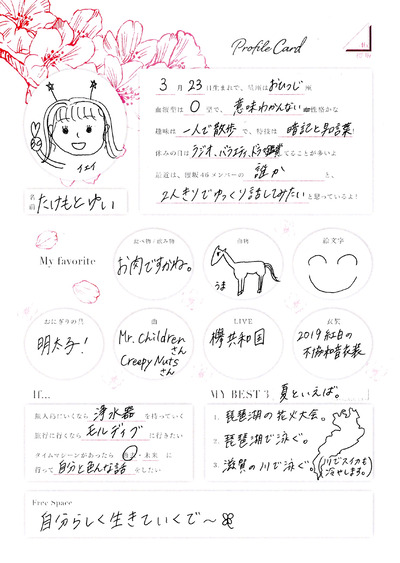 Profile Card
3月23日生まれで、星座はおひつじ座
血液型はO型で、意味わかんない性格かな
趣味は一人で散歩で、特技は暗記と和言葉!
休みの日はラジオ、バラエティ、ドラマ鑑賞てることが多いよ
最近は、櫻坂46メンバーの誰かと、
2人きりでゆっくり話してみたいと思っているよ!
イエイ
名前 たけもとゆい
My favorite
食べ物/飲み物
お肉ですかね。
動物
うま
絵文字
おにぎりの具
明太子!
曲
Mr.Childrenさん
Creepy Nutsさん
LIVE
欅共和国
衣装
2019紅白の
不協和音衣装
If...
無人島にいくなら浄水器を持っていく
旅行に行くならモルディブに行きたい
タイムマシーンがあったら過去・未来に
行って自分と色んな話をしたい
MY BEST 3 夏といえば。
1. 琵琶湖の花火大会。
2. 琵琶湖で泳ぐ。
3. 滋賀の川で泳ぐ。
川でスイカも
冷やします。
Free Space
自分らしく生きていくで〜